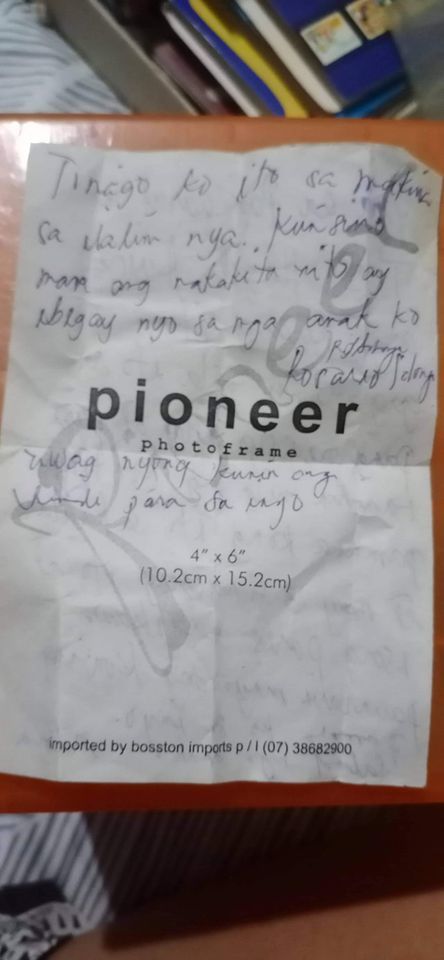 Tinago ko ito sa makina
sa ilalim nya.. Kun sino
man ang nakakita nito ay
ibigay nyo sa nga anak ko
Rosario
pioneer
photoframe
uwag nyong kunin ang
hindi para sa inyo
4" x 6"
(10.2cm x 15.2cm)
imported by bosston imports p / l (07) 38682900